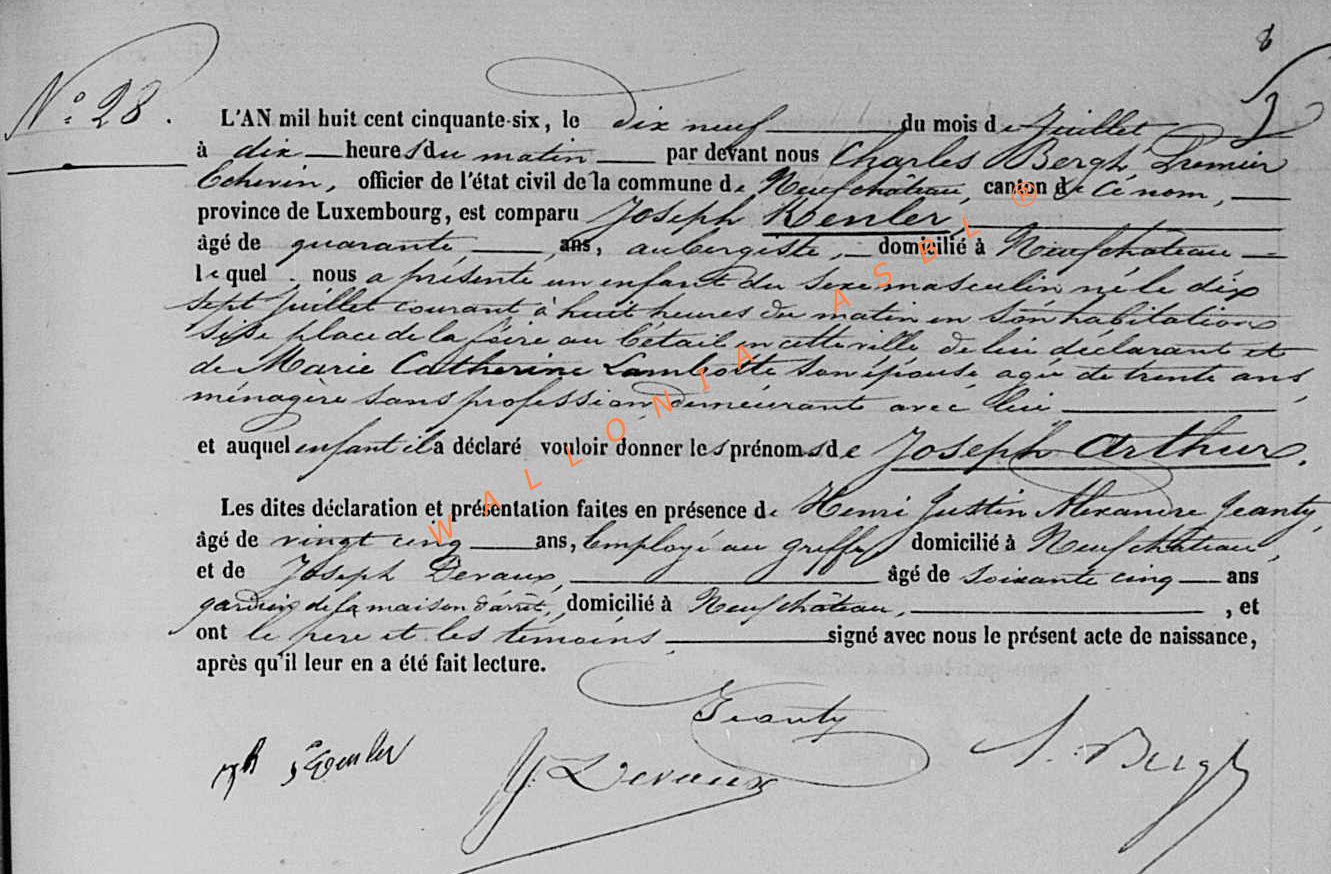 8
N° 28.
L'AN mil huit cent cinquante-six, le dix neuf du mois de Juillet
à dix heures du matin par devant nous Charles Bergh, Premier
Echevin, officier de l'état civil de la commune de Neufchâteau, canton de ce nom,
province de Luxembourg, est comparu Joseph Kenler,
âgé de quarante ans, aubergiste, domicilié à Neufchateau
lequel nous a présenté un enfant du sexe masculin né le dix
sept Juillet courant à huit heures du matin en son habitation
sise place de la foire au bétail en cette ville de lui déclarant et
de Marie Catherine Lambotte son épouse, agée de trente ans,
ménagère sans profession demeurant avec lui
et auquel enfant il a déclaré vouloir donner les prénoms de Joseph Arthur.
Les dites déclaration et présentation faites en présence de Henri Justin Alexandre Jeanty,
âgé de vingt cinq ans, Employé au greffe, domicilié à Neufchâteau,
et de Joseph Devaux, âgé de soixante cinq ans
gardien de la maison d'arrêt, domicilié à Neufchâteau, , et
ont le père et les témoins, signé avec nous le présent acte de naissance,
après qu'il leur en a été fait lecture.
Jeanty
J. Devaux
Bergh
WALLONIA ASBL ®